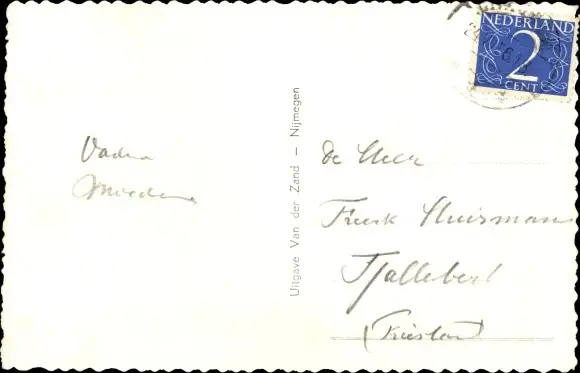 NEDERLAND
2
CENT
Vader
Moeder
Uitgave Van der Zand – Nijmegen
de Heer
Freerk Huisman
Tjallebert
(Friesland)